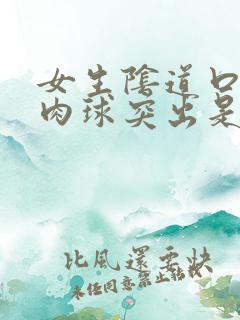 女生陰道口
肉球突出是
比風還要快
未经同意禁止转载